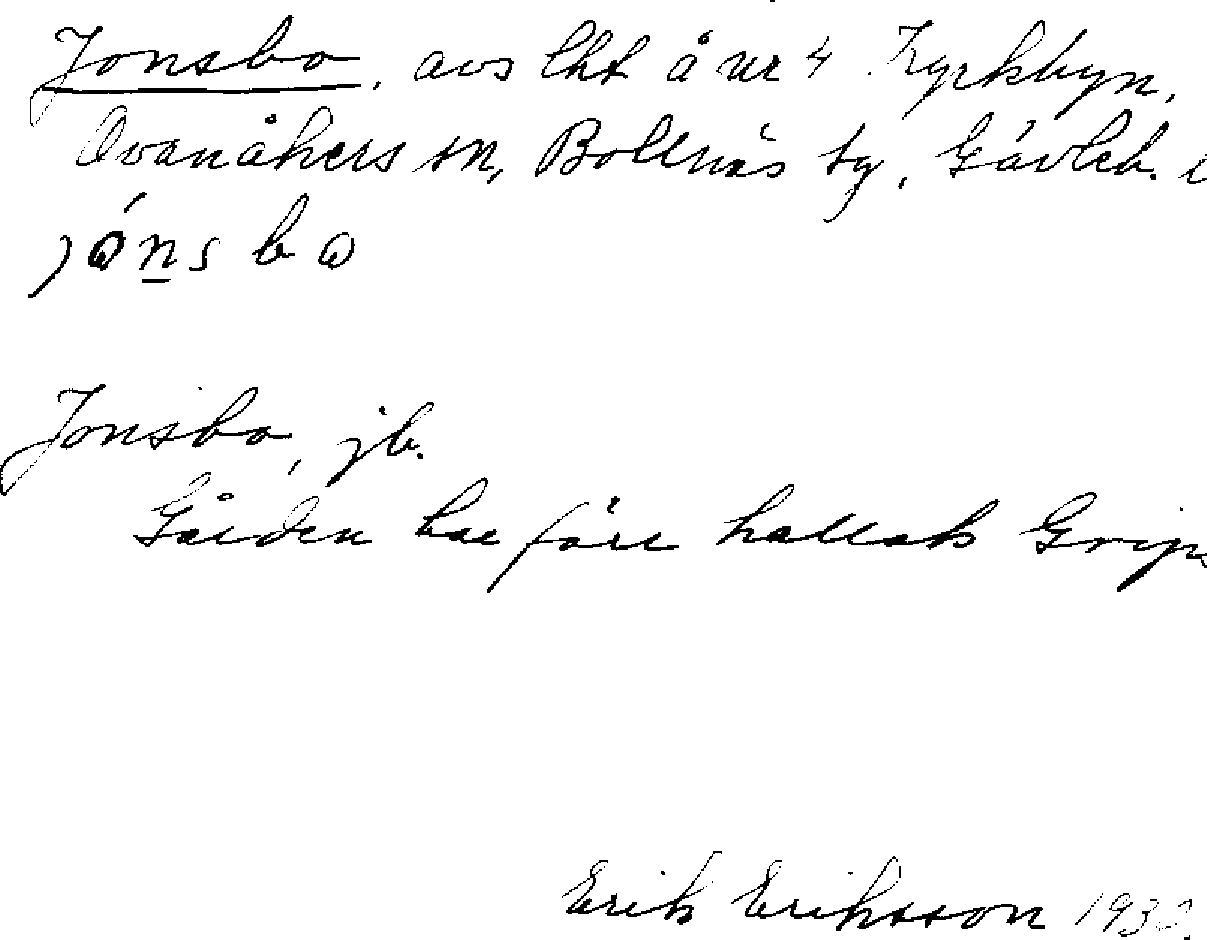 Jonsbo, avs lht å nr 4 Kyrkbyn,
Ovanåkers sn, Bollnäs tg, Gävleb. l
Jonsbo, jb.
Gården har förr kallats
Erik Eriksson 1932.